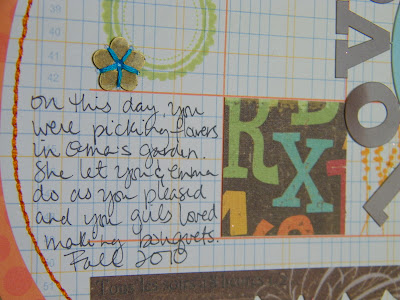 39
40
41
42
on this day, you
were picking flowers
in Oma's garden.
She let you & emma
do as you pleased
and you girls loved
making bouquets.
Fall 2010
R
X
LOVE